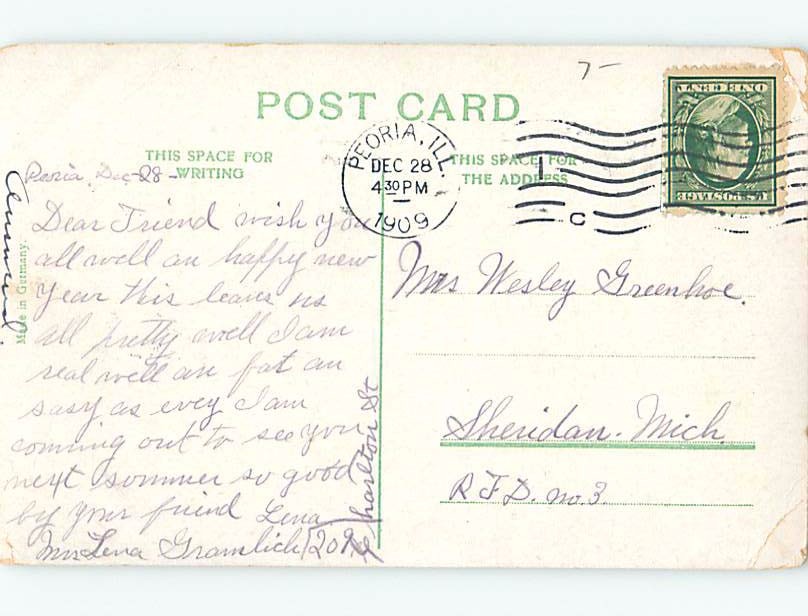 7-
POST CARD
THIS SPACE FOR
WRITING
THIS SPACE FOR
THE ADDRESS
PEORIA, ILL.
DEC 28
4 30 PM
1909
C
ONE CENT
U.S. POSTAGE
Made in Germany.
Peoria, Dec-28-
Dear Friend wish you
all well an happy new
Year this leavs us
all pretty well I am
real well an fat an
sasy as evey I am
coming out to see you
next sommer so good
by your friend Lena
Mrs Lena Gramlich 209
Charlton St
Mrs Wesley Greenhoe.
Sheridan. Mich.
R.F.D. no. 3.